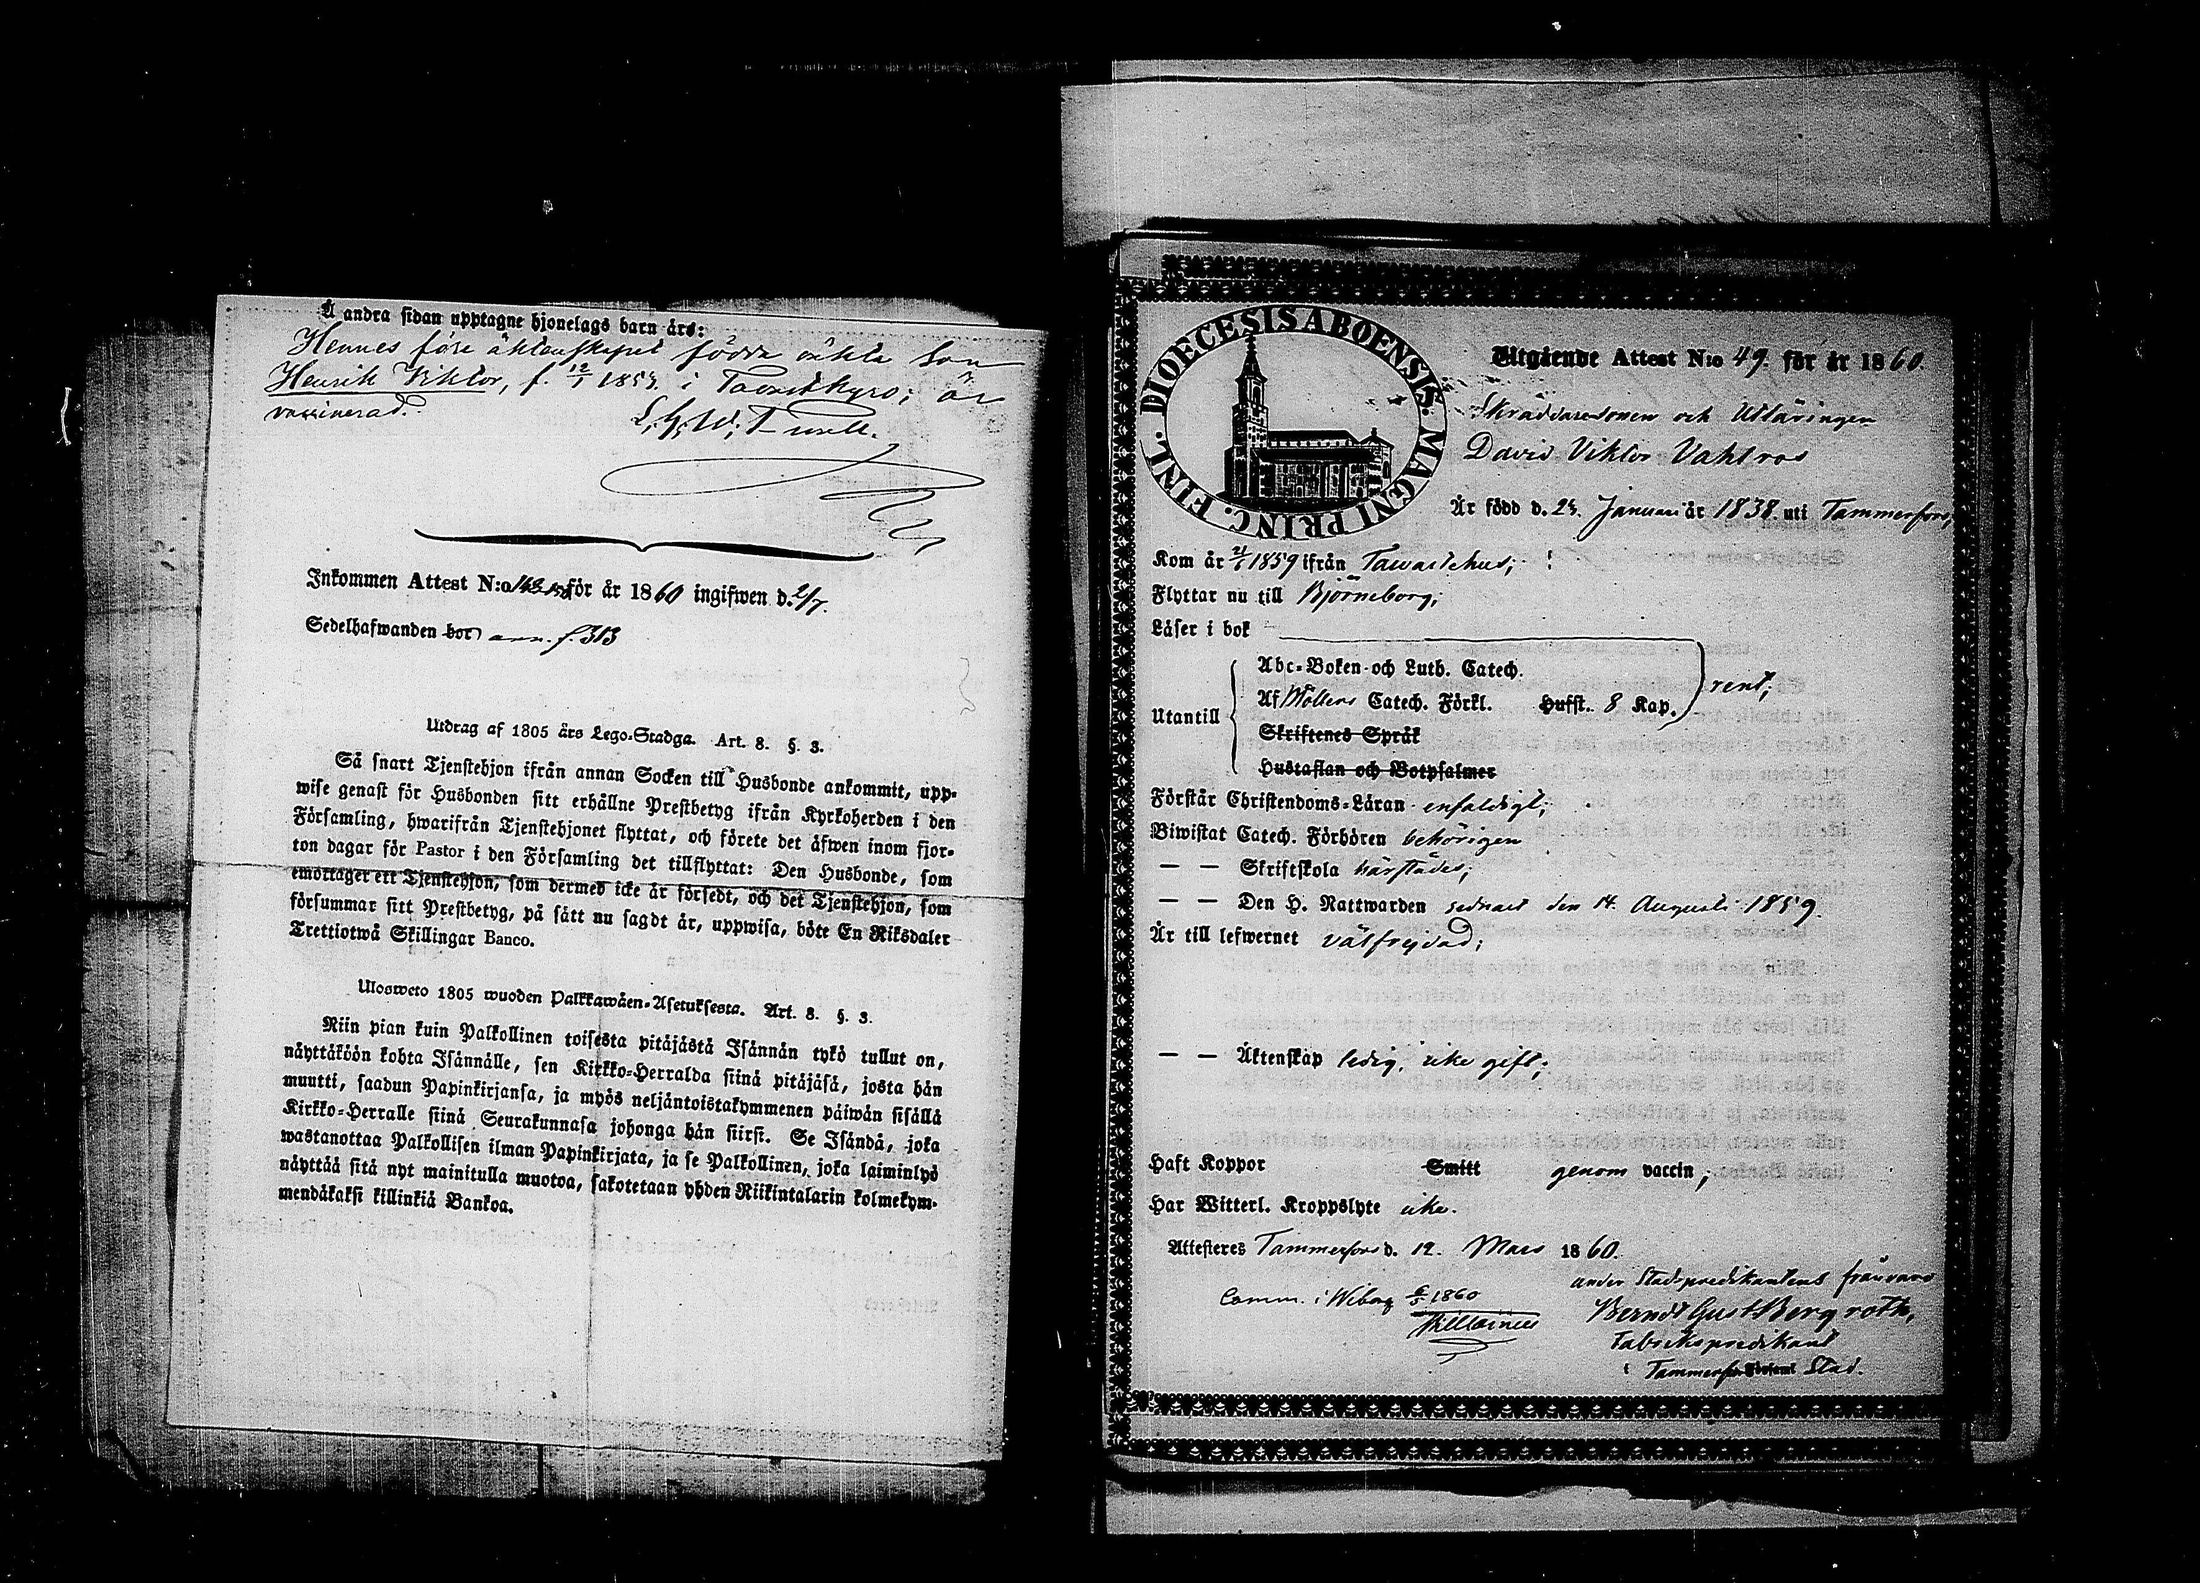 Å andra sidan upptagne hjonelags barn äro:
Hennes före äktenskapet födda oäkta Son
Henrik Viktor, f. 12/1 1854. i Tavastkyro; är
vaccinerad.
Inkommen Attest N:o för år 1860 ingifwen d. 2/7.
Sedelhafwanden bor ann. f. 313
Utdrag af 1805 års Lego-Stadga. Art. 8. §. 3.
Så snart Tjenstehjon ifrån annan Socken till Husbonde ankommit, upp-
wise genast för Husbonden sitt erhållne Prestbetyg ifrån Kyrkoherden i den
Församling, hwarifrån Tjenstehjonet flyttat, och förete det äfwen inom fjor-
ton dagar för Pastor i den Församling det tillflyttat: Den Husbonde, som
emottager ett Tjenstehjon, som dermed icke är försedt, och det Tjenstehjon, som
försummar sitt Prestbetyg, på sätt nu sagdt är, uppwisa, böte En Riksdaler
Trettiotwå Skillingar Banco.
Ulosweto 1805 wuoden Palkkawäen-Asetuksesta. Art. 8. §. 3.
Niin pian kuin Palkollinen toisesta pitäjästä Isännän tykö tullut on,
näyttäköön kohta Isännälle, sen Kirkko-Herralda siinä pitäjäsä, josta hän
muutti, saadun Papinkirjansa, ja myös neljäntoistakymmenen päiwän sisällä
Kirkko-Herralle siinä Seurakunnasa johonga hän siirsi. Se Isändä, joka
wastanottaa Palkollisen ilman Papinkirjata, ja se Palkollinen, joka laiminlyö
näyttää sitä nyt mainitulla muotoa, sakotetaan yhden Riikintalarin kolmekym-
mendäkaksi killinkiä Bankoa.
DIOECESIS ABOENSIS. MAGNI PRINC. FINL.
Utgående Attest N:o 49. för år 1860.
Skräddaresonen och Utläringen
David Viktor Vahlroos
Är född d. 24. Januari år 1838. uti Tammerfors;
Kom år 21/1 1859 ifrån Tawastehus;
Flyttar nu till Björneborg;
Läser i bok
Abc-Boken och Luth. Catech.
Utantill Af Möllers Catech. Förkl. Hufst. 8 Kap. rent;
Skriftenes Språk
Hustaflan och Botpsalmer
Förstår Christendoms-Läran enfaldigt;
Biwistat Catech. Förhören behörigen
— — Skriftskola härstädes;
— — Den H. Nattwarden sednast den 14. Augusti 1859.
Är till lefwernet välfrejdad;
— — Äktenskap ledig, icke gift;
Haft Koppor Smitt genom vaccin;
Har Witterl. Kroppslyte icke.
Attesteres Tammerfors d. 12. Mars 1860.
under Stadspredikantens frånvaro
Comm. i Wiborg 1860
Berndt Gust Bergroth,
Fabrikspredikant
i Tammerfors Församl. Stad.